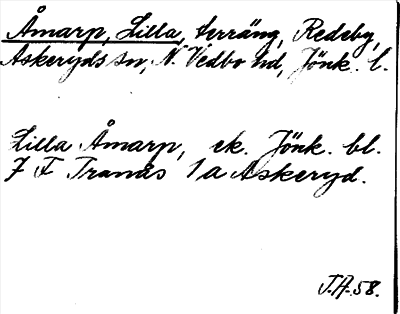 Åmarp, Lilla, terräng, Redeby,
Askeryds sn, N. Vedbo hd, Jönk. l.
Lilla Åmarp, ek. Jönk. bl.
7 F Tranås 1 a Askeryd.
J.A.58.